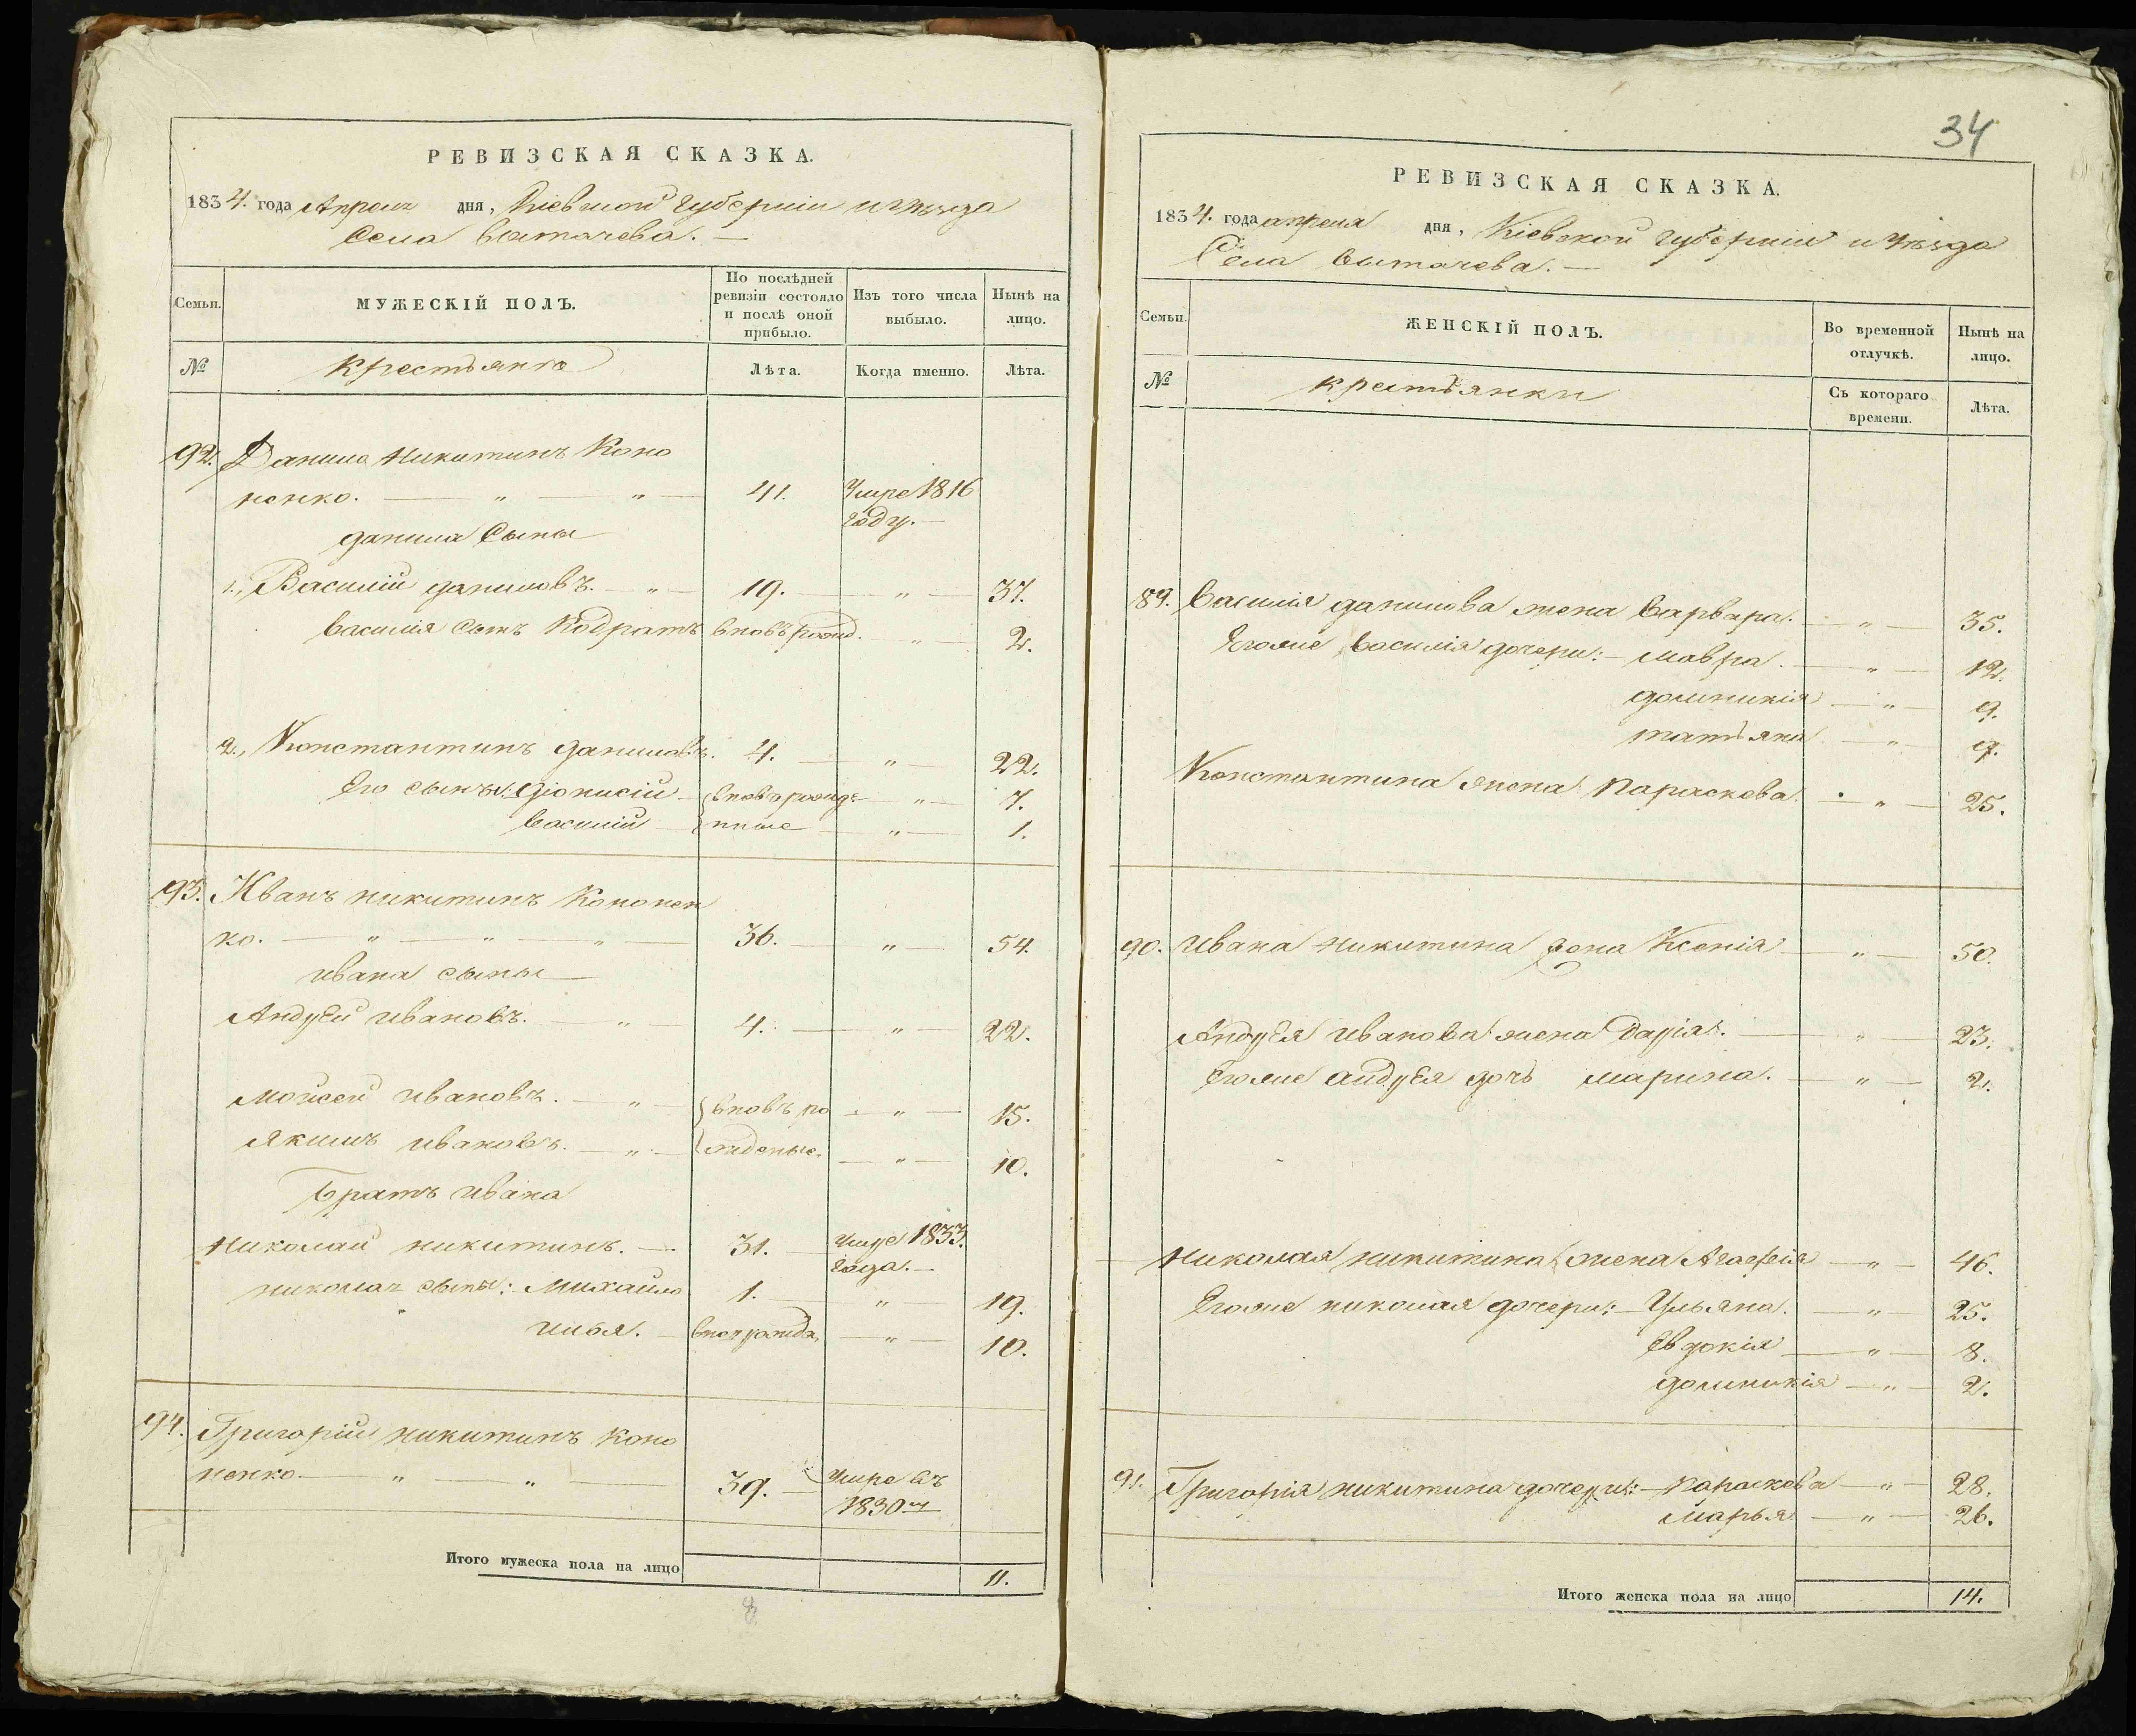 РЕВИЗСКАЯ СКАЗКА.
1834. года Апреля дня, Кіевской Губерніи и уѣзда
Села Витачева. —
Семьи.
МУЖЕСКІЙ ПОЛЪ.
По послѣдней ревизіи состояло и послѣ оной прибыло.
Изъ того числа выбыло.
Нынѣ на лицо.
№
Крестьяне
Лѣта.
Когда именно.
Лѣта.
92. Данило Никитинъ Коно
ненко. — " — " — 41. Умре 1816
году. —
данила Сыны
1., Василій даниловъ. — " — 19. — " — 37.
Василія сынъ Кодратъ вновь рожд. — " — 2.
2., Константинъ даниловъ. 4. — " — 22.
Его сыны: Діонисій — вновь рожде — " — 7.
Василій — нные — " — 1.
93. Иванъ никитинъ Кононен
ко. — " — " — " — 36. — " — 54.
ивана сыны
Андрей ивановъ. — " — 4. — " — 22.
Мойсей ивановъ. — " — вновь ро — " — 15.
Якимъ ивановъ. — " — жденые. — " — 10.
Братъ ивана
Николай никитинъ. — 31. — Умре 1833.
года. —
николая сыны: Михайло 1. — " — 19.
илья. — вновь рожд. — " — 10.
94. Григорій никитинъ Коно
ненко — " — " — 39. — Умре въ
1830 м
Итого мужеска пола на лицо 11.
34
РЕВИЗСКАЯ СКАЗКА.
1834. года апреля дня, Кіевской губерніи и Уѣзда
Села Витачева. —
Семьи.
ЖЕНСКІЙ ПОЛЪ.
Во временной отлучкѣ.
Нынѣ на лицо.
№
крестьянки
Съ котораго времени.
Лѣта.
89. Василія данилова жена Варвара. — " — 35.
Егоже Василія дочери: — мавра. — " — 12.
домникія — " — 9.
татьяна — " — 7.
Константина жена Параскева. — " — 25.
90. Ивана никитина жена Ксенія — " — 50.
Андрея иванова жена Дарія. — " — 23.
Егоже андрея дочь марина. — " — 2.
Николая никитина жена Агафія — " — 46.
Егоже николая дочери: — Ульяна. — " — 25.
Евдокія — " — 8.
домникія — " — 2.
91. Григорія никитина дочери: — Параскева — " — 28.
Марья — " — 26.
Итого женска пола на лицо 14.